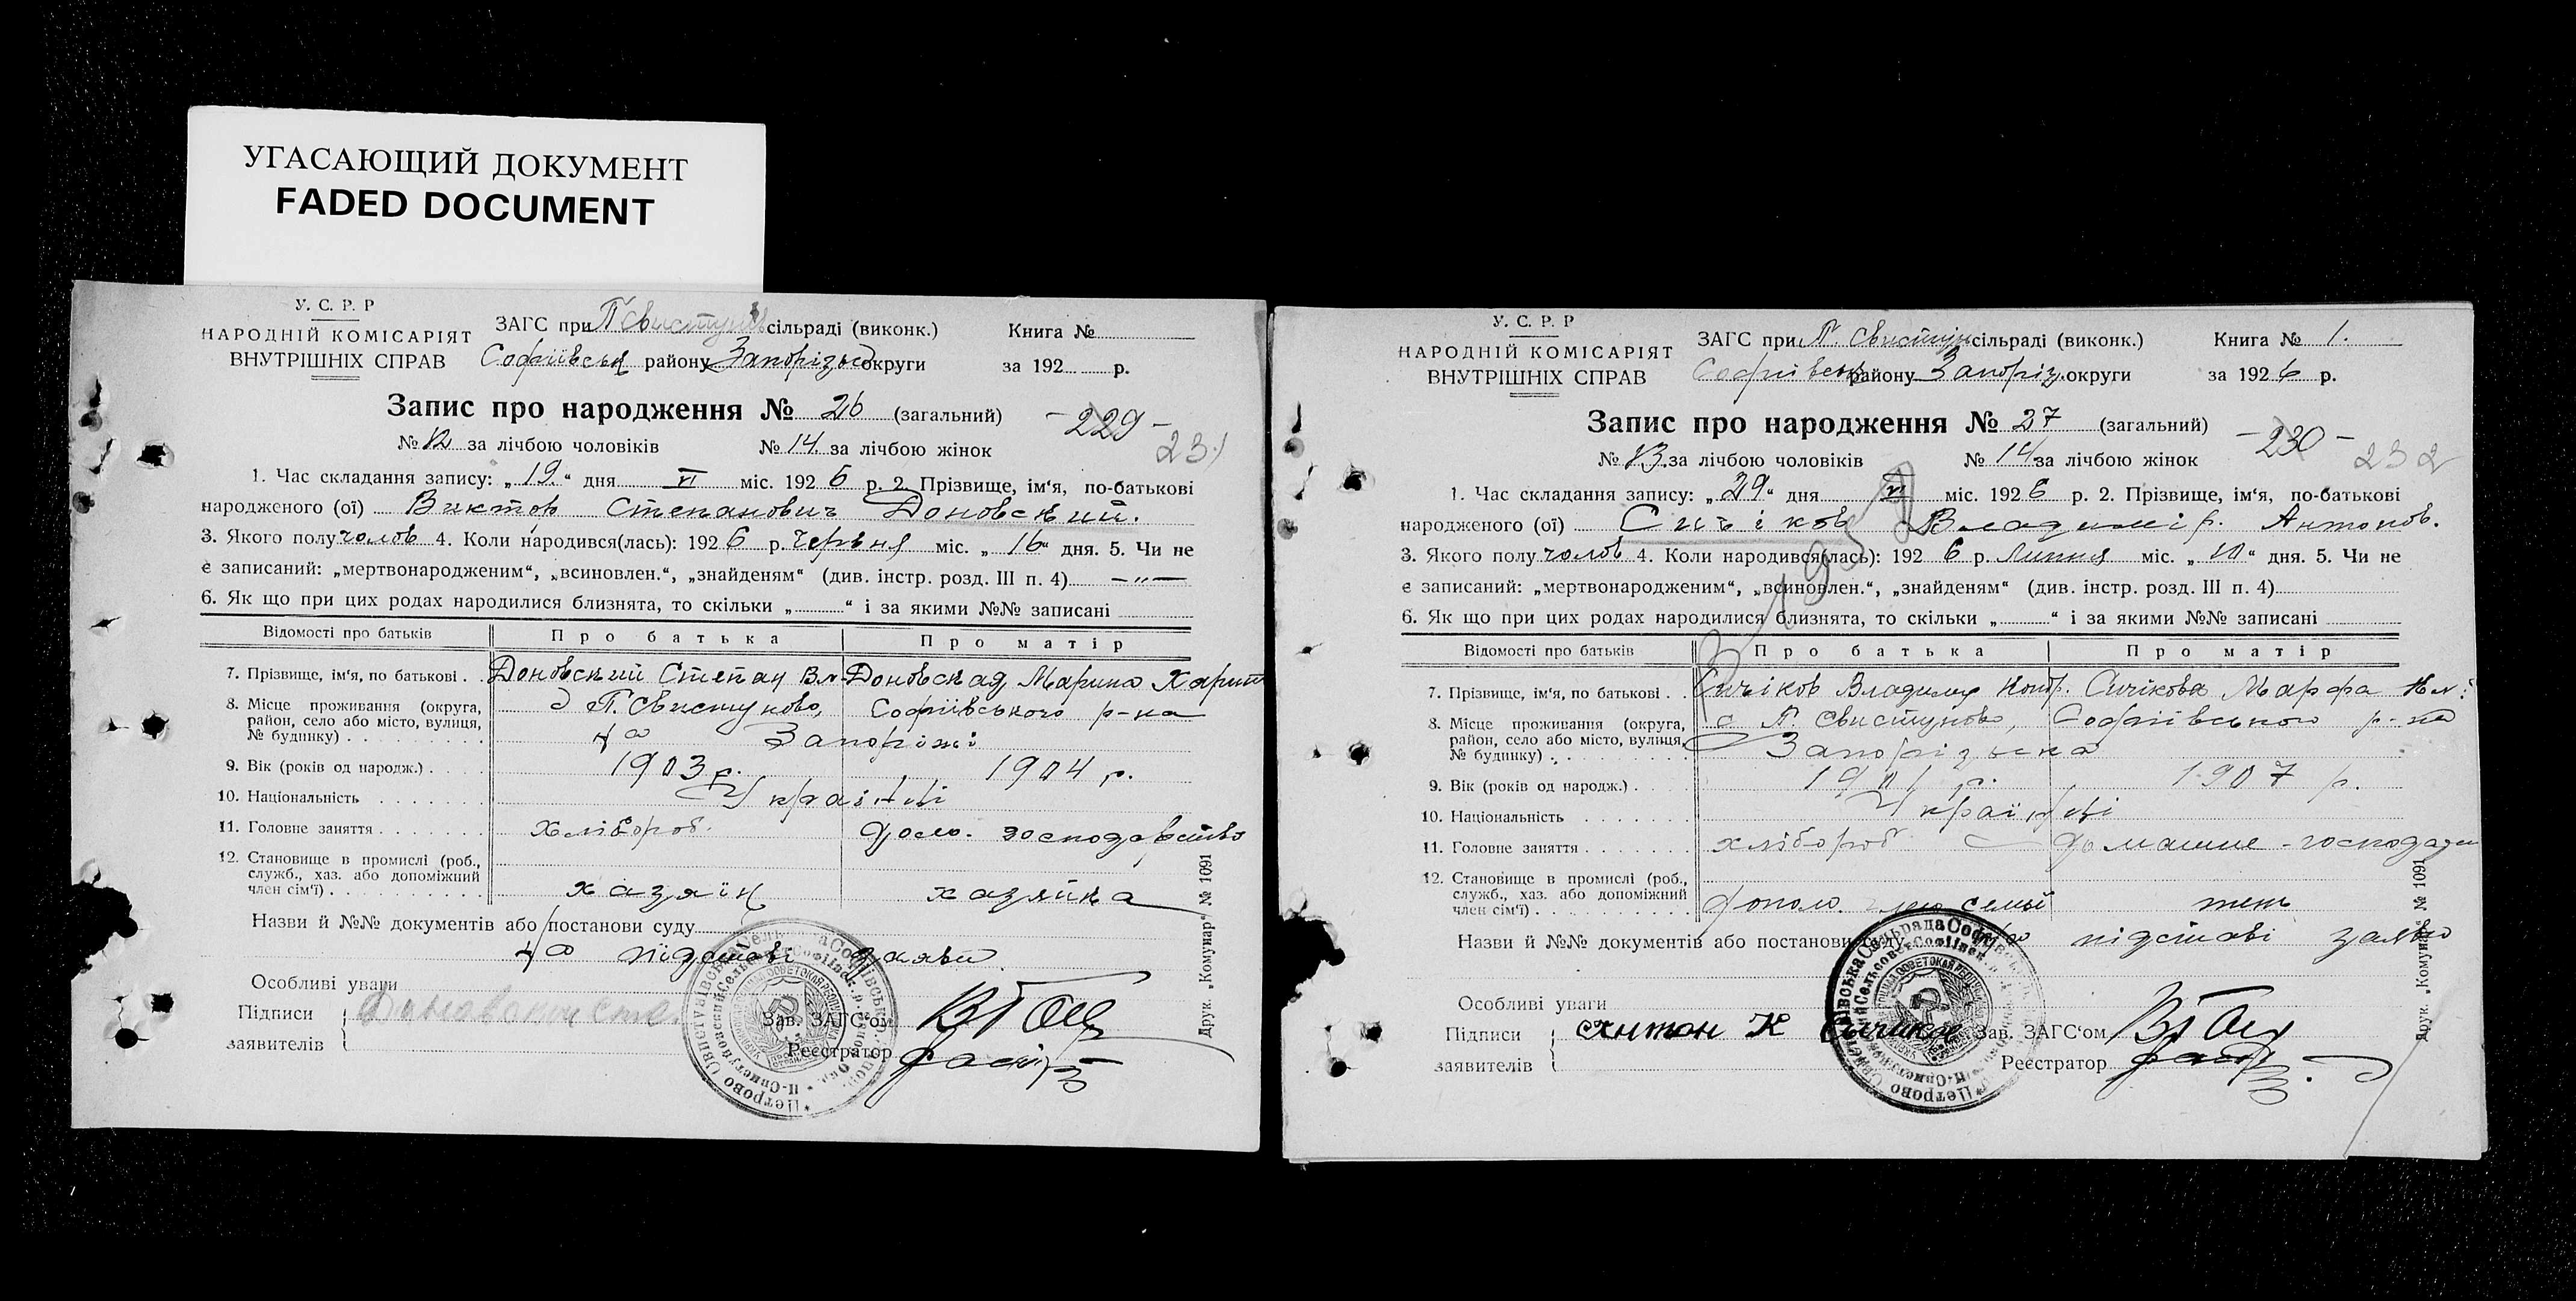 УГАСАЮЩИЙ ДОКУМЕНТ
FADED DOCUMENT
У. С. Р. Р
НАРОДНІЙ КОМІСАРІЯТ
ВНУТРІШНІХ СПРАВ
ЗАГС при П Свистунів сільраді (виконк.)
Софіївськ району Запорізьк округи
Книга №
за 192 р.
Запис про народження № 26 (загальний)
- 229 -
231
№ 12 за лічбою чоловіків № 14 за лічбою жінок
1. Час складання запису: „ 19 “ дня VI міс. 192 6 р. 2. Прізвище, ім‘я, по-батькові
народженого (ої) Виктор Степанович Доновский.
3. Якого полу чолов 4. Коли народився(лась): 192 6 р. Червня міс. „ 16 “ дня. 5. Чи не
є записаний: „мертвонародженим“, „всиновлен.“, „знайденям“ (див. інстр. розд. III п. 4) — „ —
6. Як що при цих родах народилися близнята, то скільки „ “ і за якими №№ записані
Відомості про батьків Про батька Про матір
7. Прізвище, ім‘я, по батькові . . Доновский Степан Вл. Доновская Марина Харит
8. Місце проживання (округа, район, село або місто, вулиця, № будинку) П. Свистуново, Софіївського р-на
Запоріжі
9. Вік (років од народж.) 1903 р. 1904 р.
10. Національність Українці
11. Головне заняття хлібороб. дом. господарство
12. Становище в промислі (роб., служб., хаз. або допоміжний член сім‘ї) хазяїн хазяйка
Назви й №№ документів або постанови суду
на підставі заяви
Особливі уваги
Підписи
заявителів
Зав. ЗАГС‘ом
Реєстратор
Друк. „Комунар“ № 1091
У. С. Р. Р
НАРОДНІЙ КОМІСАРІЯТ
ВНУТРІШНІХ СПРАВ
ЗАГС при П. Свистун сільраді (виконк.)
Софіївськ району Запоріз. округи
Книга № 1.
за 192 6 р.
Запис про народження № 27 (загальний)
- 230 -
232
№ 13. за лічбою чоловіків № 14 за лічбою жінок
1. Час складання запису: „ 29 “ дня міс. 192 6 р. 2. Прізвище, ім‘я, по-батькові
народженого (ої) Сичіков Владимір. Антонов.
3. Якого полу чолов 4. Коли народився(лась): 192 6 р. Липня міс. „ 10 “ дня. 5. Чи не
є записаний: „мертвонародженим“, „всиновлен.“, „знайденям“ (див. інстр. розд. III п. 4)
6. Як що при цих родах народилися близнята, то скільки „ “ і за якими №№ записані
Відомості про батьків Про батька Про матір
7. Прізвище, ім‘я, по батькові . . Сичіков Владимир Сичікова Марфа
8. Місце проживання (округа, район, село або місто, вулиця, № будинку) с П. Свистуново, Софіївського р-на
Запорізька
9. Вік (років од народж.) 1901 р. 1907 р.
10. Національність Українці
11. Головне заняття хлібороб домашне - господар
12. Становище в промислі (роб., служб., хаз. або допоміжний член сім‘ї) допом. член семьі
Назви й №№ документів або постанови суду на підставі заяви
Особливі уваги
Підписи
заявителів
Антон К Сичиков
Зав. ЗАГС‘ом
Реєстратор
Друк. „Комунар“ № 1091